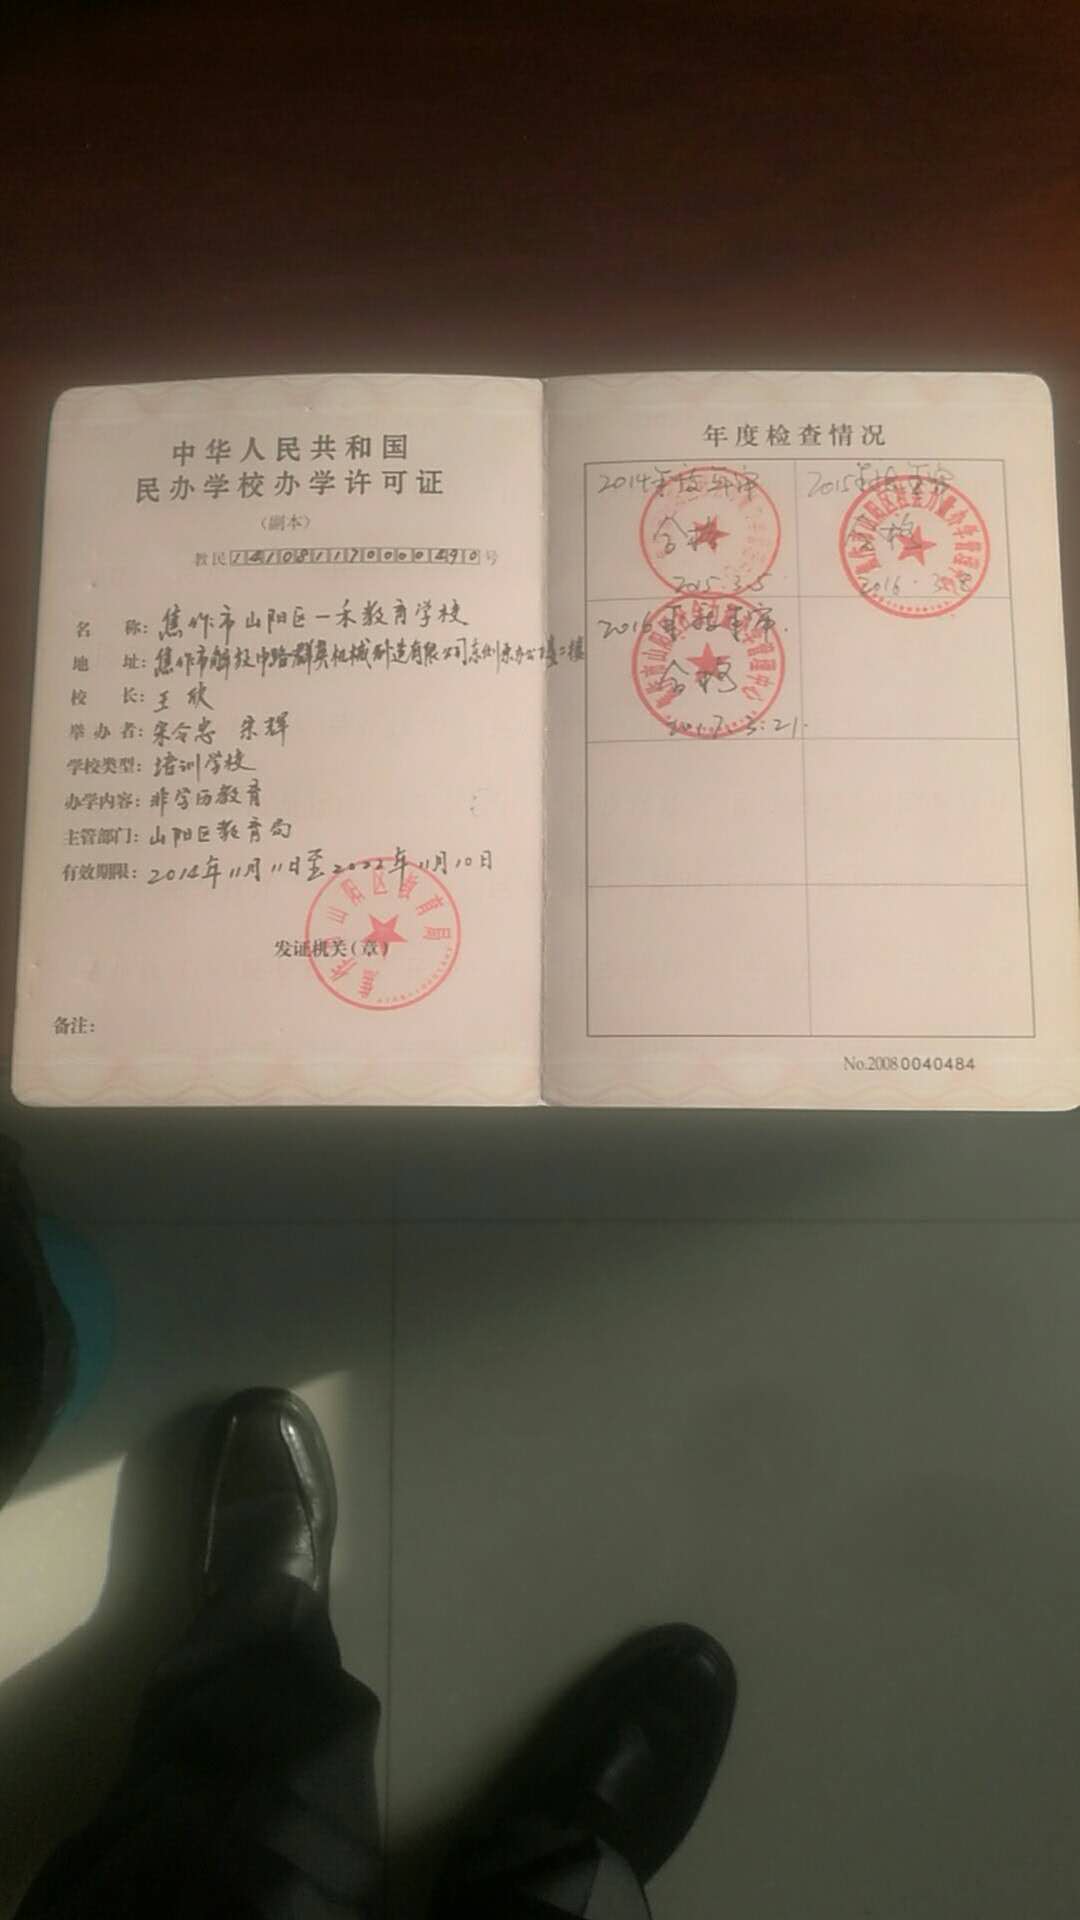 中华人民共和国
民办学校办学许可证
（副本）
教民141081170000490号
名 称：焦作市山阳区一禾教育学校
地 址：焦作市解放中路群英机械制造有限公司东侧原办公楼二楼
校 长：王欣
举办者：宋令忠 宋辉
学校类型：培训学校
办学内容：非学历教育
主管部门：山阳区教育局
有效期限：2014年11月11日至2022年11月10日
发证机关（章）
焦作市山阳区教育局
备注：
年度检查情况
2014年度年审
合格
2015.3.5
2015年检年审
合格
2016.3.8
2016年检年审.
合格
2017.3.21.
No.20080040484